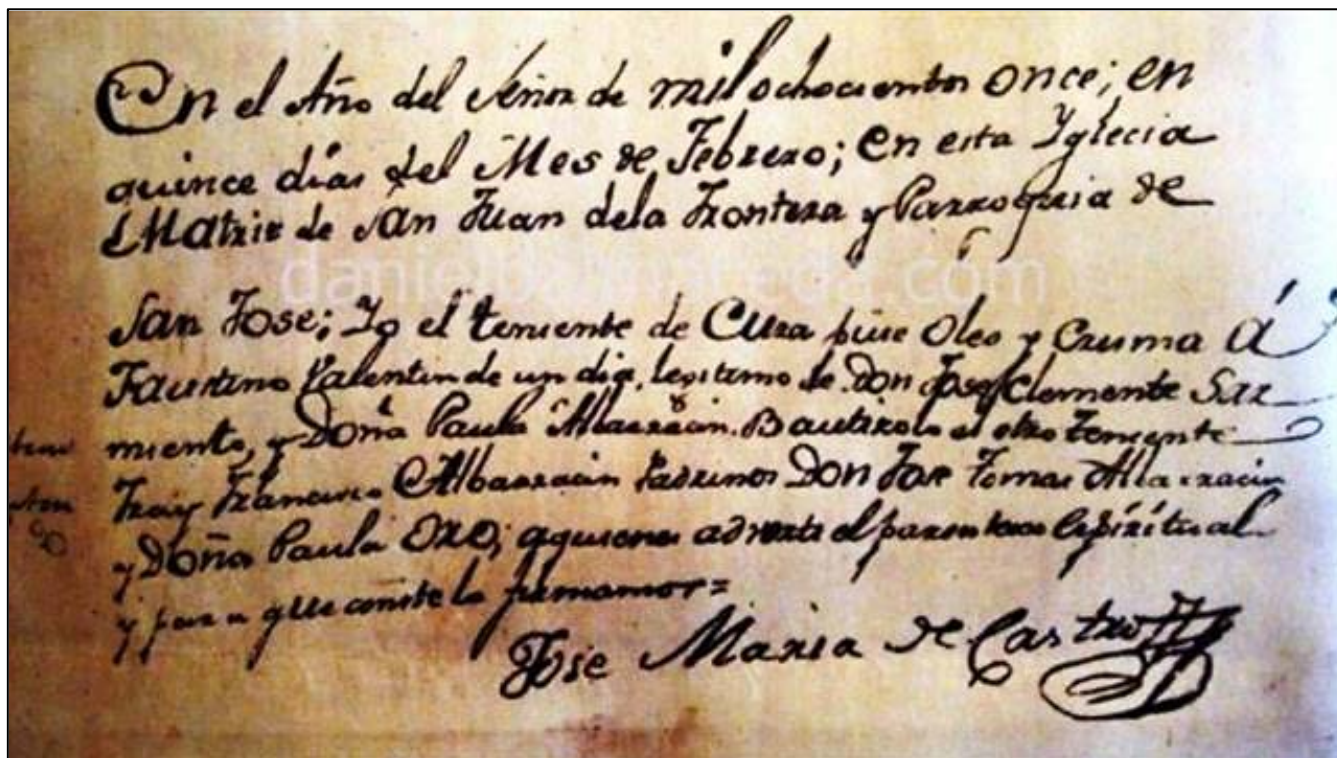 En el Año del Señor de mil ochocientos once; en
quince días del Mes de Febrero; en esta Yglecia
Matriz de San Juan dela Frontera y Parroquia de
danielbalmaceda.com
San Jose; Yo el teniente de Cura puse Oleo y Crisma Á
Faustino Valentin de un dia, legitimo de Don Jose Clemente Sar
miento, y Doña Paula Albarracin. Bautizolo el otro teniente
Fray Francisco Albarracin Padrinos Don Jose Tomas Albarracin
y Doña Paula Oro; aquienes adverti el parentesco Espíritual
y para que conste lo firmamos=
Jose Maria de Castro